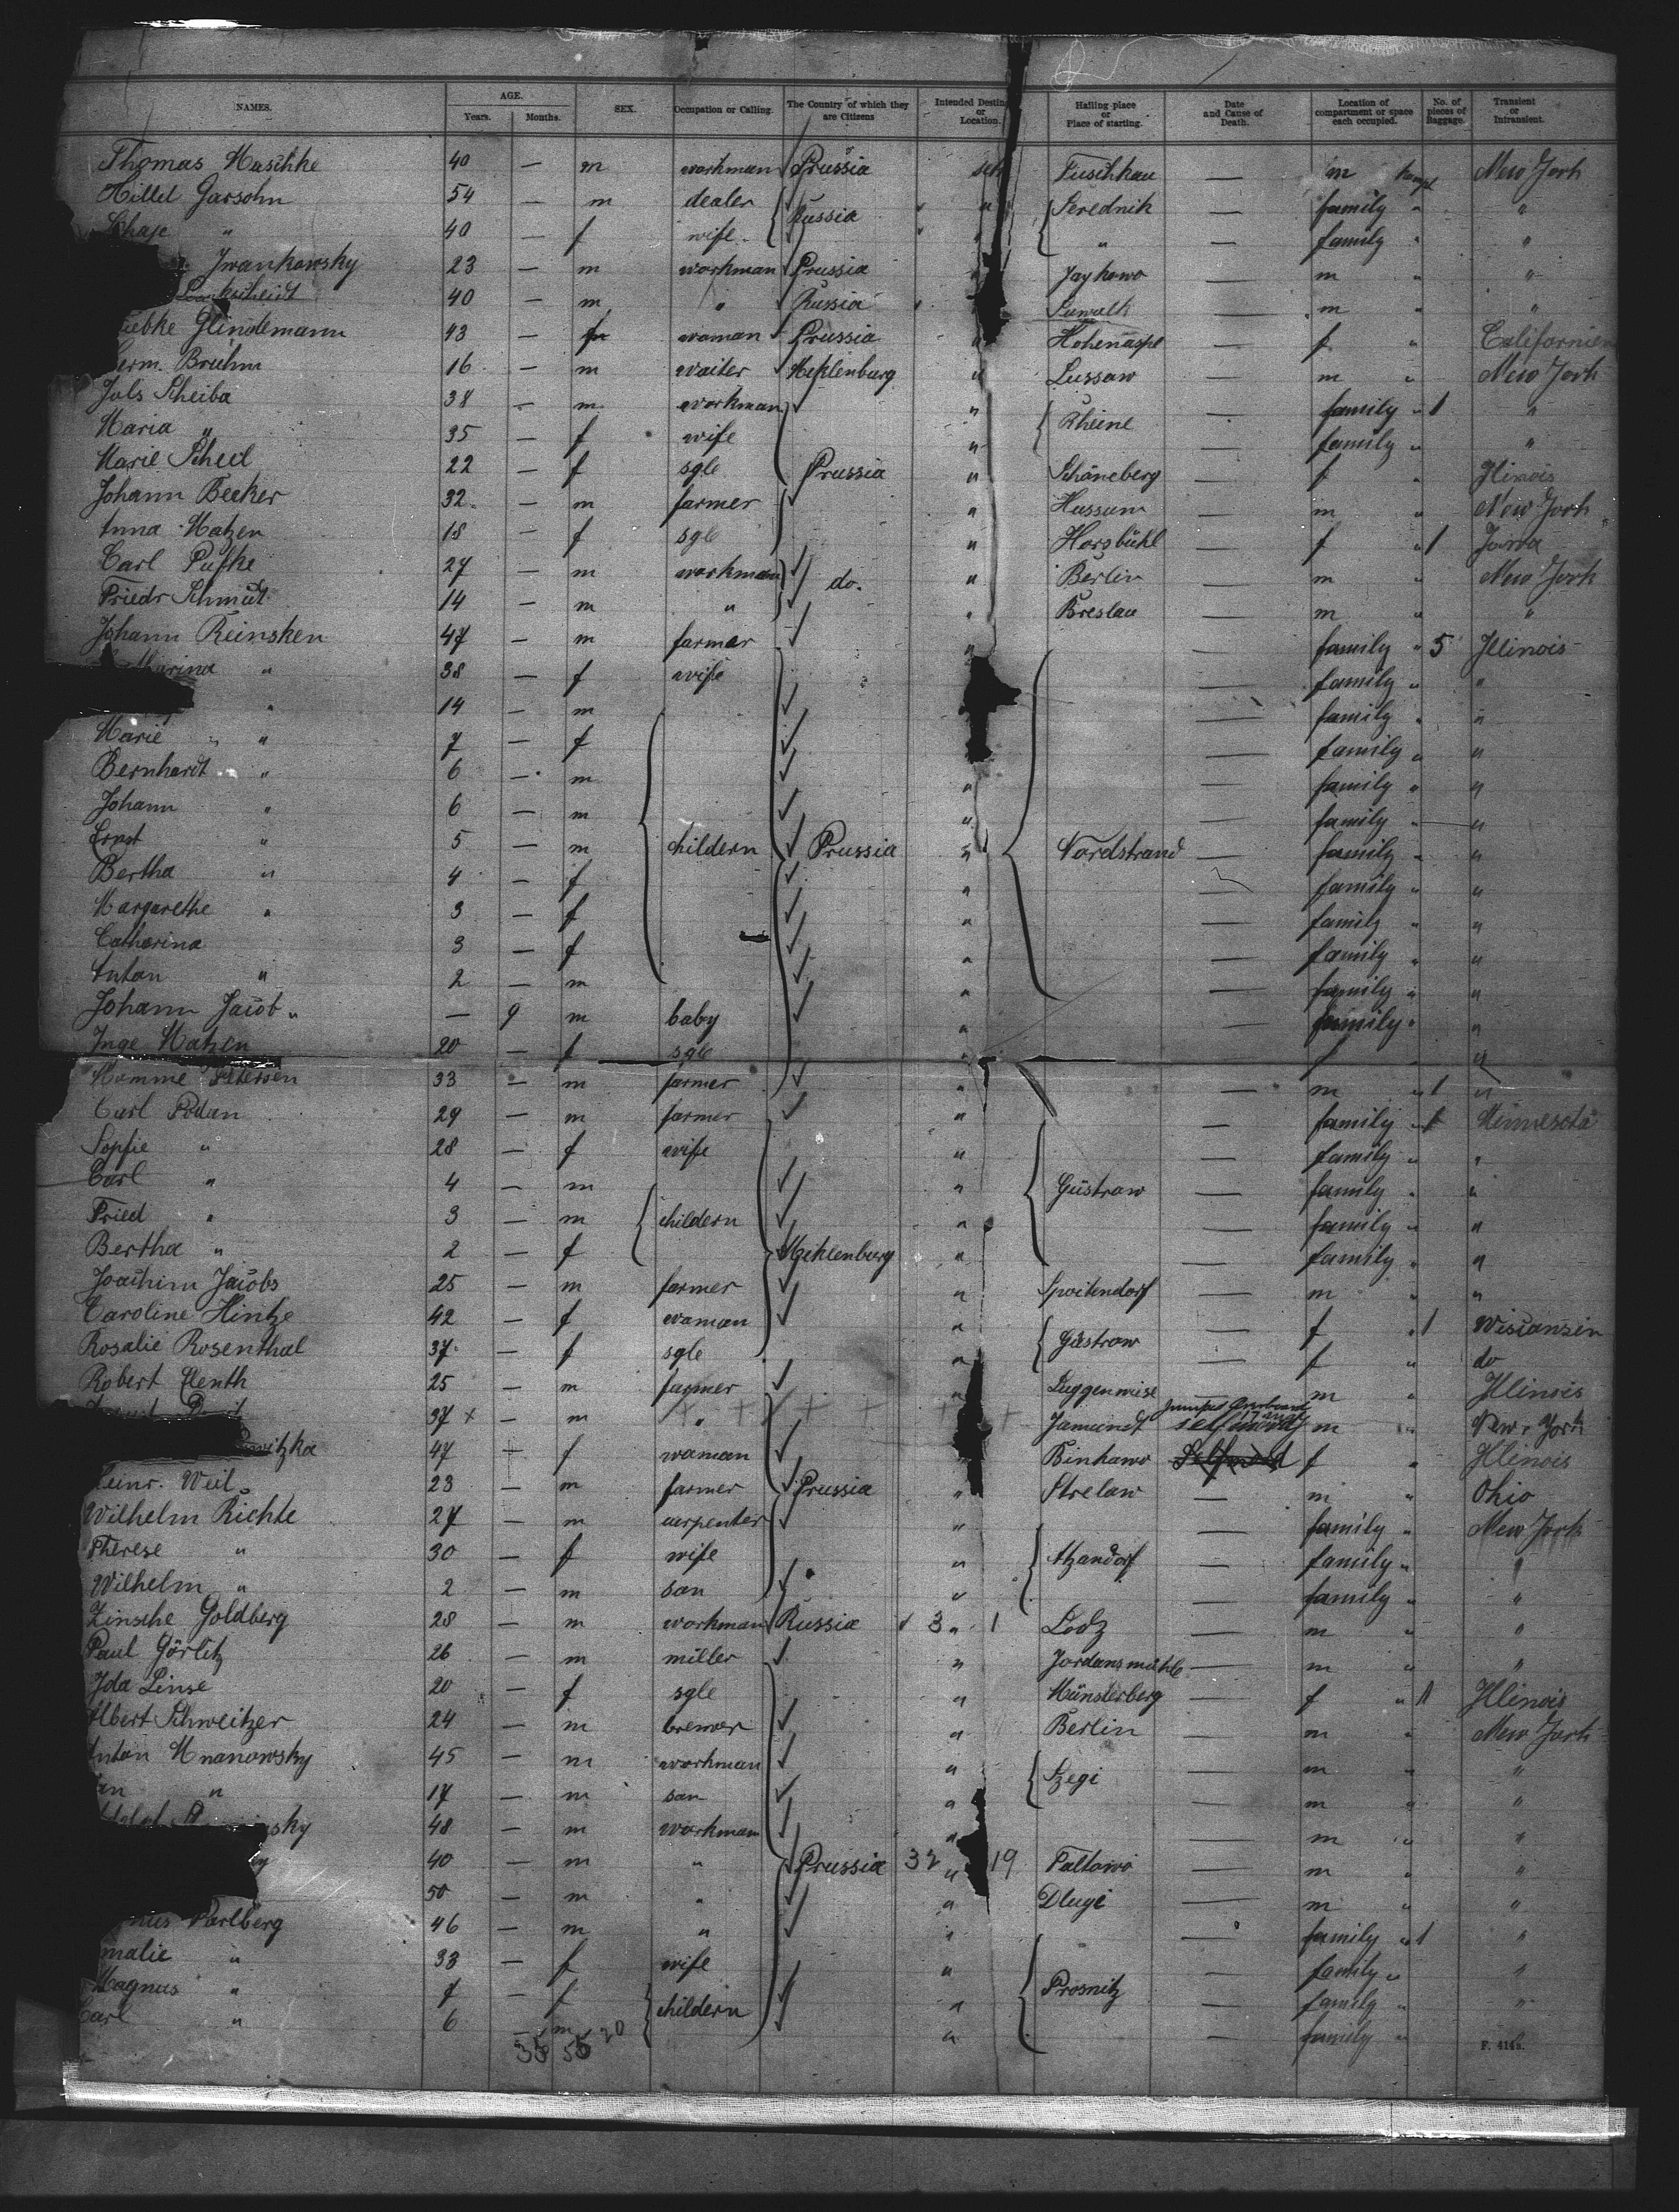 NAMES. AGE. Years. Months. SEX. Occupation or Calling. The Country of which they are Citizens Intended Destin or Location. Hailing place or Place of starting. Date and Cause of Death. Location of compartment or space each occupied. No. of pieces of Baggage. Transient or Intransient.
Thomas Maschke 40 — m workman Prussia Tuschkau — m New York
Hillel Garsohn 54 — m dealer Russia " Serednik — family " "
" 40 — f wife " " — family " "
Iwankowsky 23 — m workman Prussia " Jaykowo — m " "
40 — m " Russia " Suwalk — m " "
Glindemann 43 — f woman Prussia " Hohenaspe — f " Californien
erm. Bruhm 16 — m waiter Meklenburg " Lussow — m " New York
Jols Scheiba 38 — m workman " Rheine — family " 1 "
Maria " 35 — f wife " — family " "
Marie Scheel 22 — f sgle Prussia " Schöneberg — f " Ilinois
Johann Becker 32 — m farmer " Hussum — m " New York
Anna Matzen 18 — f sgle " Horsbühl — f " 1 Jowa
Carl Pufke 27 — m workman do. " Berlin — m " New York
Friedr Schmidt 14 — m " " Breslau — m " "
Johann Reinsken 47 — m farmer " — family " 5 Illinois
tharina " 38 — f wife — family " "
" 14 — m — family " "
Marie " 7 — f — family " "
Bernhardt " 6 — m " — family " "
Johann " 6 — m " — family " "
Ernst " 5 — m childern Prussia " Nordstrand — family " "
Bertha " 4 — f " — family " "
Margarethe " 3 — f " — family " "
Catharina 3 — f " — family " "
Anton " 2 — m " — family " "
Johann Jacob " — 9 m baby " — family " "
Inge Matzen 20 — f sgle " — f "
Momme Petersen 33 — m farmer " — m " 1 "
Carl Podan 29 — m farmer " — family " 1 Minnesota
Sopfie " 28 — f wife " — family " "
Carl " 4 — m " Güstrow — family " "
Fried " 3 — m childern " — family " "
Bertha " 2 — f Meklenburg " — family " "
Joachim Jacobs 25 — m farmer " Spoitendorf — m " "
Caroline Hintze 42 — f woman " Güstrow — f " 1 Wisconsin
Rosalie Rosenthal 37 — f sgle " — f " do
Robert Klenth 25 — m farmer " Luggenwiese — m " Illinois
37 + — m " Jamundt jumped overboard 17 May m " New York
witzka 47 — f woman Binkawo f " Illinois
Heinr. Weil 23 — m farmer Prussia " Strelaw — m " Ohio
Wilhelm Richte 27 — m carpenter " — family " New York
Therese " 30 — f wife " Atzendorf — family " "
Wilhelm " 2 — m son " — family " "
Zinsche Goldberg 28 — m workman Russia 3 " 1 Lodz — m " "
Paul Görlitz 26 — m miller " Jordansmühle — m " "
Ida Linse 20 — f sgle " Münsterberg — f " 1 Illinois
Albert Schweitzer 24 — m brewer " Berlin — m " New York
Anton Mnanowsky 45 — m workman " Szegi — m " "
" 17 — m son " — m " "
sky 48 — m workman " — m " "
y 40 — m " Prussia 32 " 19 Paltowo — m " "
50 — m " " Dlugi — m " "
nus Parlberg 46 — m " " — family " 1 "
malie " 33 — f wife " — family " "
Magnus " 7 — f childern " Prosnitz — family " "
Carl " 6 — m " — family "
35 55 20
F. 414b.